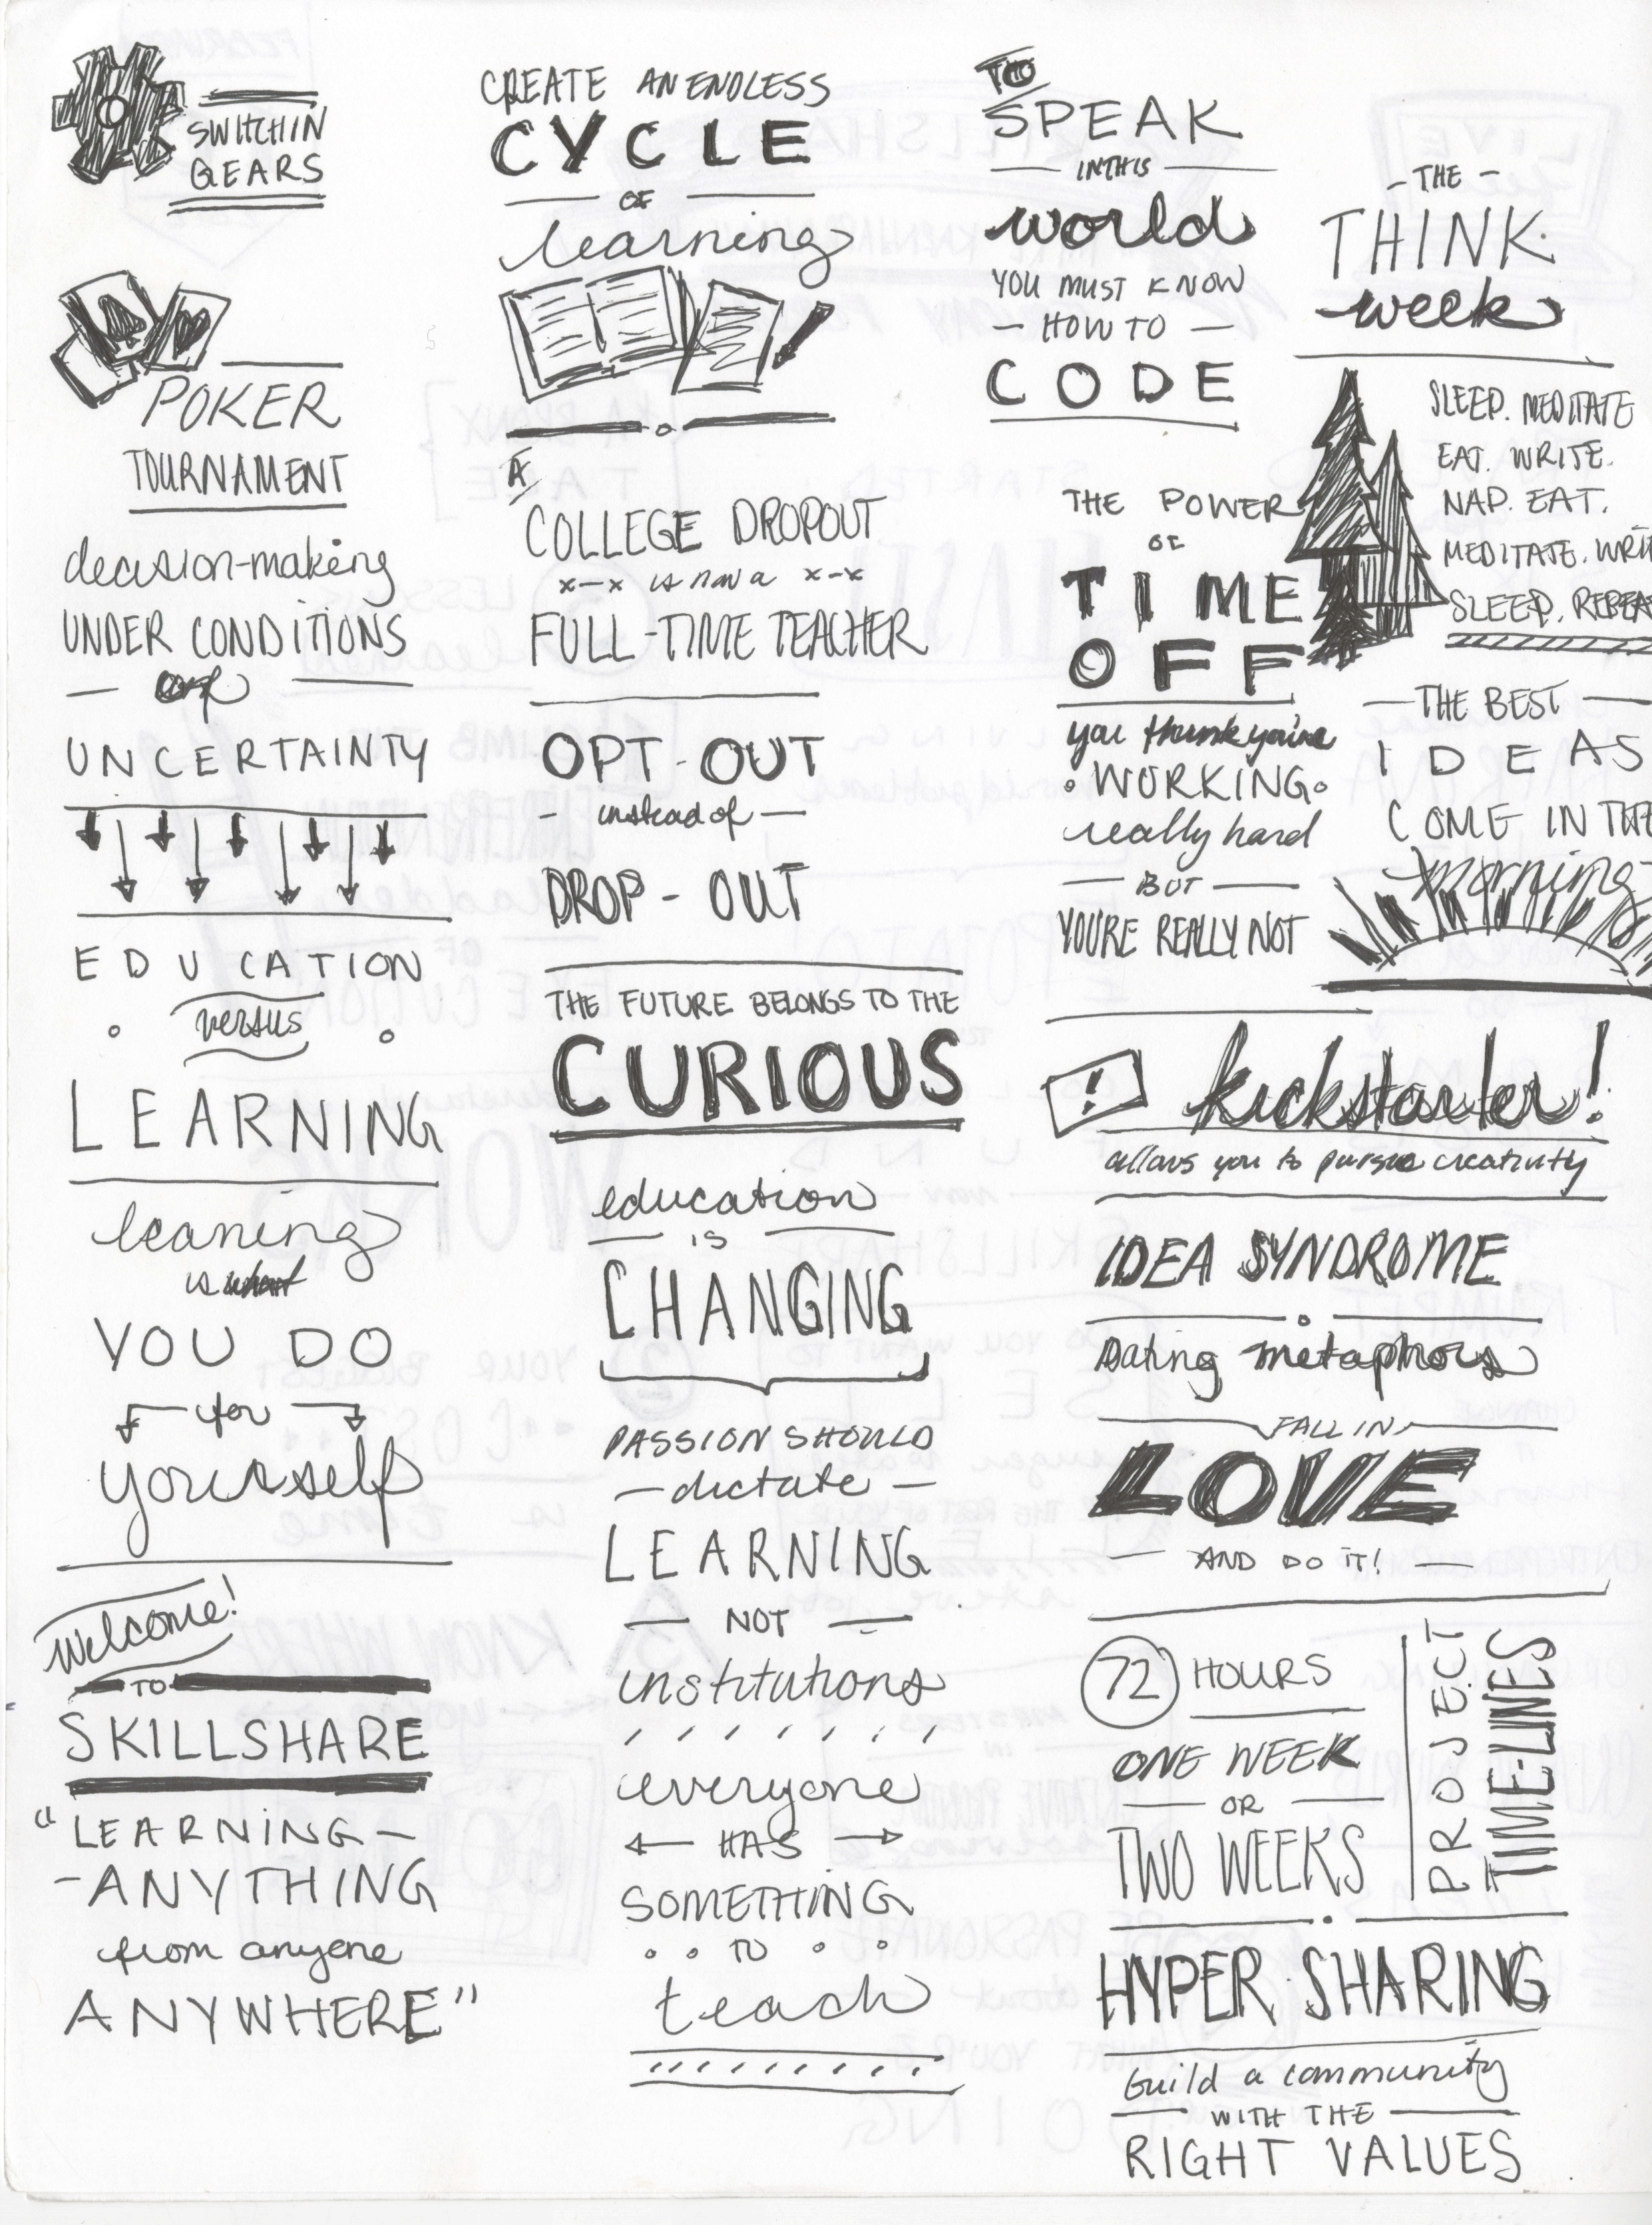 SWITCHIN
GEARS
POKER
TOURNAMENT
decision-making
UNDER CONDITIONS
of
UNCERTAINTY
EDUCATION
versus
LEARNING
leaning
is
YOU DO
for
yourself
welcome!
TO
SKILLSHARE
"LEARNING-
-ANYTHING
from anyone
ANYWHERE"
CREATE AN ENDLESS
CYCLE
OF
learning
A
COLLEGE DROPOUT
x-x is now a x-x
FULL-TIME TEACHER
OPT-OUT
- instead of -
DROP-OUT
THE FUTURE BELONGS TO THE
CURIOUS
education
IS
CHANGING
PASSION SHOULD
-dictate-
LEARNING
- NOT -
institutions
everyone
HAS
SOMETHING
TO
teach
TO
SPEAK
IN THIS
world
YOU MUST KNOW
- HOW TO -
CODE
THE POWER
OF
TIME
OFF
you think you're
WORKING
really hard
- BUT -
YOU'RE REALLY NOT
- THE -
THINK
week
SLEEP. MEDITATE
EAT. WRITE.
NAP. EAT.
MEDITATE. WRIT
SLEEP. REPEA
- THE BEST -
IDEAS
COME IN THE
morning
! kickstarter!
allows you to pursue creativity
IDEA SYNDROME
Dating metaphors
FALL IN
LOVE
- AND DO IT! -
72 HOURS
ONE WEEK
- OR -
TWO WEEKS
PROJECT
TIME-LINES
HYPER SHARING
Build a community
- WITH THE -
RIGHT VALUES